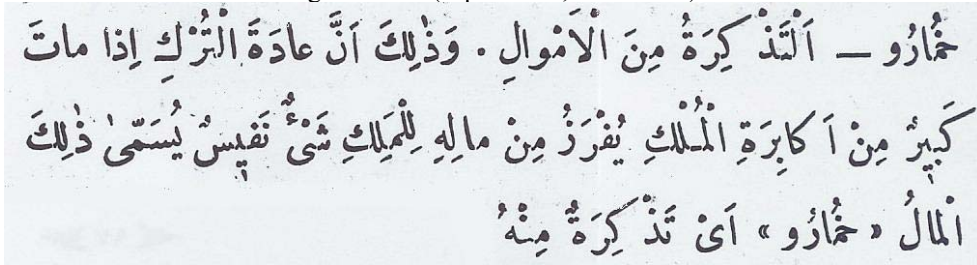 خُمارُو — اَلْتَذْكِرَةُ مِنَ الْاَمْوالِ . وَذٰلِكَ اَنَّ عادَةَ الْتُرْكِ اِذا ماتَ
كَبِيرٌ مِنْ اَكابِرَةِ الْمُلْكِ يُفْرَزُ مِنْ مالِهِ لِلْمَلِكِ شَىْءٌ نَفِيسٌ يُسَمّىٰ ذٰلِكَ
الْمالُ « خُمارُو » اَىْ تَذْكِرَةٌ مِنْهُ